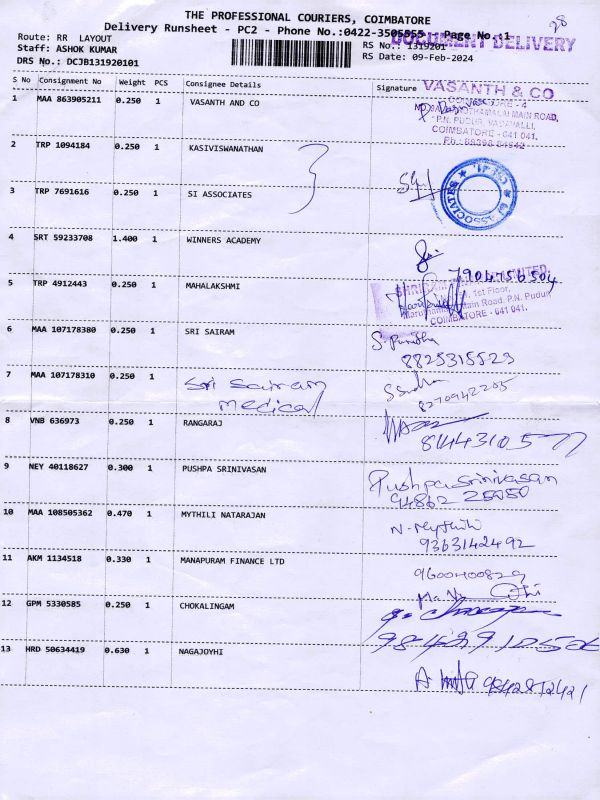 28
THE PROFESSIONAL COURIERS, COIMBATORE
Delivery Runsheet - PC2 - Phone No.:0422-3505555 Page No.:1
DOCUMENT DELIVERY
Route: RR LAYOUT
RS No.: 1319201
Staff: ASHOK KUMAR
RS Date: 09-Feb-2024
DRS No.: DCJB131920101
S No Consignment No Weight PCS Consignee Details Signature
VASANTH & CO
1 MAA 863905211 0.250 1 VASANTH AND CO
MAIN ROAD,
P.N. PUDUR, VADAVALLI,
COIMBATORE - 641 041.
2 TRP 1094184 0.250 1 KASIVISWANATHAN
3 TRP 7691616 0.250 1 SI ASSOCIATES
ASSOCIATES
4 SRT 59233708 1.400 1 WINNERS ACADEMY
7904756504
5 TRP 4912443 0.250 1 MAHALAKSHMI
LIMITED
1st Floor,
Road, P.N. Pudur,
COIMBATORE - 641 041.
6 TRP 107178380 0.250 1 SRI SAIRAM
8825315523
7 MAA 107178310 0.250 1 Sri Sairam
medical
8270942205
8 VNB 636973 0.250 1 RANGARAJ
9 NEY 40118627 0.300 1 PUSHPA SRINIVASAN
Pushpa Srinivasan
94862 25050
10 MAA 108505362 0.470 1 MYTHILI NATARAJAN
N. Mythili
9363142492
11 AKM 1134518 0.330 1 MANAPURAM FINANCE LTD
9600400829
12 GPM 5330585 0.250 1 CHOKALINGAM
13 HRD 50634419 0.630 1 NAGAJOYHI
9842812421